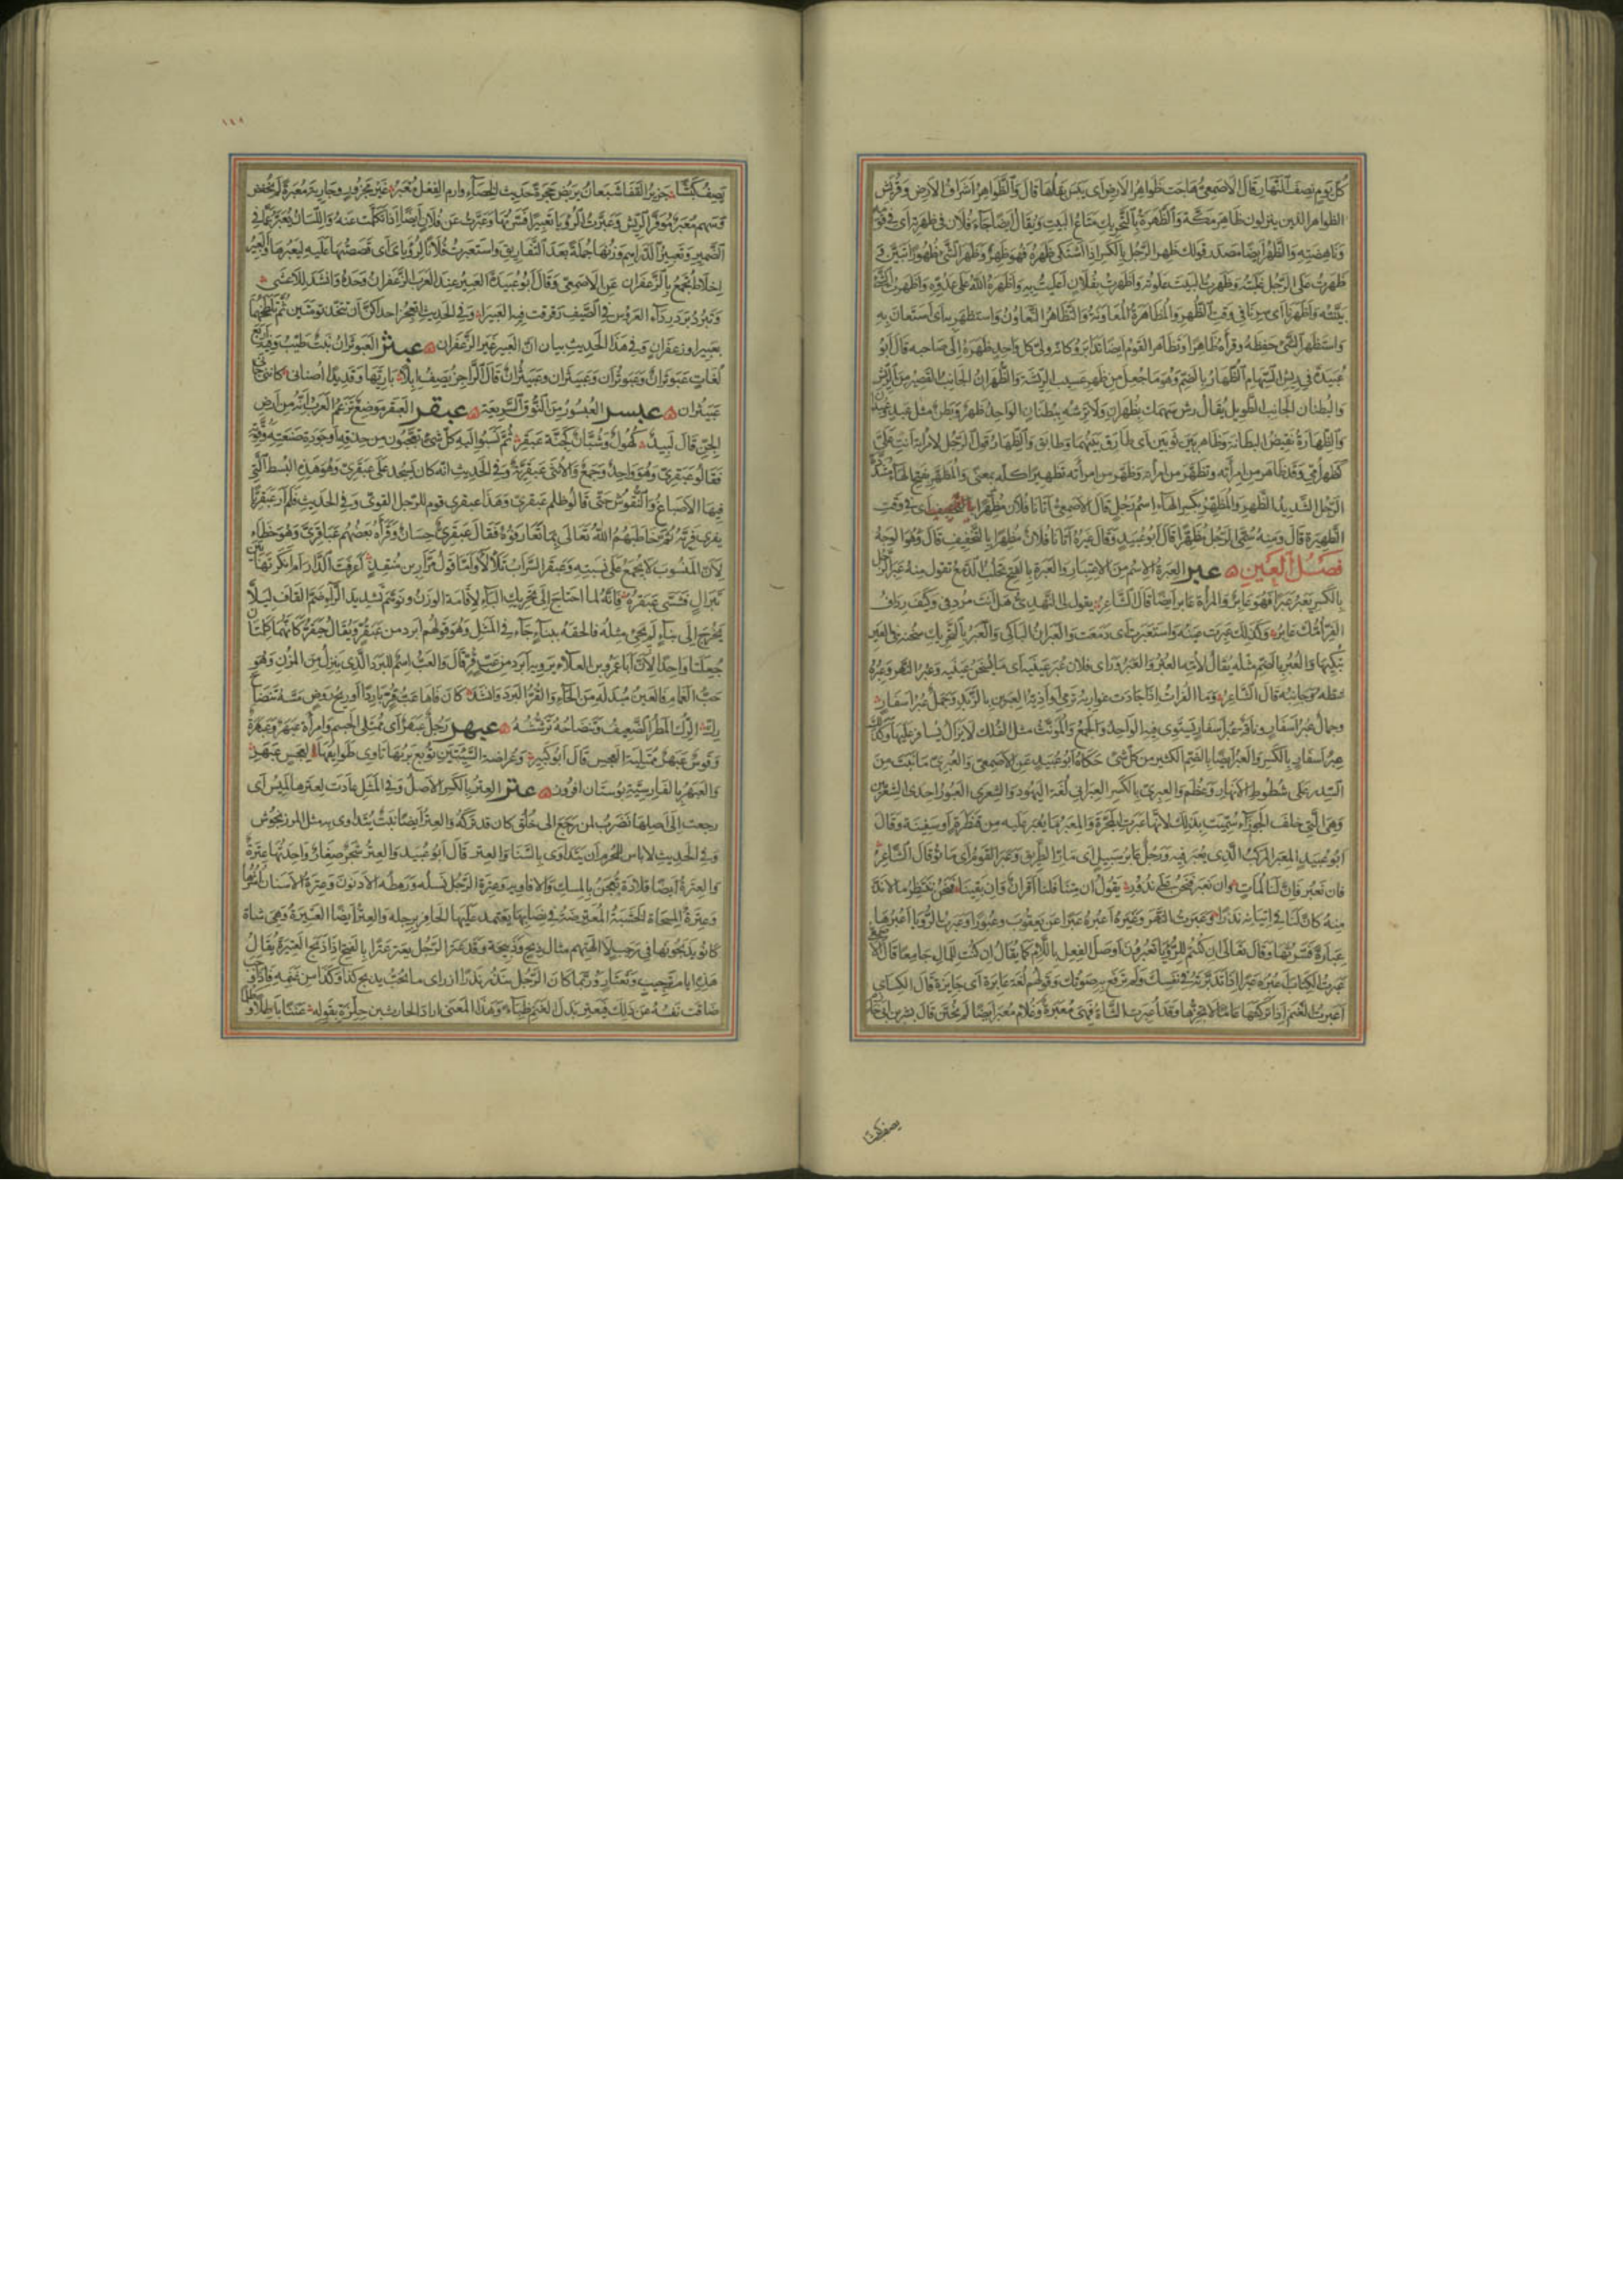 كل يوم نصف النهار قال الاصمعى هاجت ظواهر الارض اى يبس بقلها قال والظواهر اشراف الارض وقريش
الظواهر الذين ينزلون ظاهر مكة والظهرة بالتحريك متاع البيت ويقال ايضا جاء فلان فى ظهرته اى فى قومه
وناهضته والظهر ايضا مصدر قولك ظهر الرجل بالكسر اذا اشتكى ظهره فهو ظهر وظهر الشئ ظهورا تبين
ظهرت على الرجل غلبته وظهرت البيت علوته واظهرت بفلان اعليت به واظهره الله على عدوه واظهرت الشئ
بينته واظهرنا اى سرنا فى وقت الظهر والمظاهرة المعاونة والتظاهر التعاون واستظهر به اى استعان به
واستظهر الشئ حفظه وقرأه ظاهرا وتظاهر القوم ايضا تدابروا كانه ولى كل واحد ظهره الى صاحبه قال ابو
عبيدة فى ريش السهام الظهار بالضم وهو ما جعل من ظهر عسيب الريشة والظهران الجانب القصير من الريش
والبطنان الجانب الطويل يقال رش سهمك بظهران ولا ترشه ببطنان الواحد ظهر وبطن مثل عبد وعبدان
والظهارة نقيض البطانة وظاهر بين ثوبين اى طارق بينهما وطابق والظهار قول الرجل لامرأته انت على
كظهر أمى وقد ظاهر من امرأته وتظهر من امرأته وظهر من امرأته تظهيرا كله بمعنى والمظهر بفتح الهاء مشدد
الرجل الشديد الظهر والمظهر بكسر الهاء اسم رجل قال الاصمعى اتانا فلان مظهرا اى فى وقت
الظهيرة قال ومنه سمى الرجل مظهرا قال ابو عبيد وقال غيره اتانا فلان مظهرا بالتخفيف قال وهو الوجه
فصل العين عبر العبرة الاسم من الاعتبار والعبرة بالفتح تحلب الدمع تقول منه عبر الرجل
بالكسر يعبر عبرا فهو عابر والمرأة عابر ايضا قال الشاعر يقول لى النهدى هل انت مردفى وكيف رداف
الفر امك عابر وكذلك عبرت عينه واستعبرت اى دمعت والعبران الباكى والعبر بالتحريك سخنة فى العين
تبكيها والعبر بالضم مثله يقال لأمه العبر والعبر ورأى فلان عبر عينيه اى ما يسخن عينيه وعبر النهر وعبره
شطه وجانبه قال الشاعر وما الفرات اذا جاشت غواربه ترمى اواذيه العبرين بالزبد وجمل عبر اسفار
وجمال عبر اسفار وناقة عبر اسفار يستوى فيه الواحد والجمع والمؤنث مثل الفلك لا يزال يسافر عليها وكذلك
عبر اسفار بالكسر والعبر ايضا بالضم الكثير من كل شئ حكاه ابو عبيد عن الاصمعى والعبرى ما نبت من
السدر على شطوط الانهار وعظم والعبرى بالكسر العبرانى لغة اليهود والشعرى العبور احدى الشعريين
وهى التى خلف الجوزاء سميت بذلك لانها عبرت المجرة والمعبر ما يعبر عليه من قنطرة او سفينة وقال
ابو عبيد المعبر المركب الذى يعبر فيه ورجل عابر سبيل اى مار الطريق وعبر القوم اى ماتوا قال الشاعر
فان نعبر فان لنا لمات وان نغبر فنحن على نذور يقول ان متنا فلنا اقران وان بقينا فنحن ننتظر ما لا بد
منه كان لنا فى اتيانه نذرا وعبرت النهر وغيره اعبره عبرا عن يعقوب وعبورا وعبرت الرؤيا اعبرها
عبارة فسرتها وقال تعالى ان كنتم للرؤيا تعبرون اوصل الفعل باللام كما يقال ان كنت للمال جامعا قال الاصمعى
عبرت الكتاب اعبره عبرا اذا تدبرته فى نفسك ولم ترفع به صوتك وقولهم لغة عابرة اى جايزة قال الكسائى
اعبرت الغنم اذا تركتها عاما لا تجزها وقد اعبرت الشاة فهى معبرة وغلام معبر ايضا لم يختن قال بشر بن ابى خازم
يصف كبشا
١١٨
يصف كبشا جزيز القفا شبعان يربض حجرة حديث الخصاء وارم العفل معبر اى غير مجزوز وجارية معبرة لم تخفض
وسهم معبر موفر الريش وعبرت الرؤيا تعبيرا فسرتها وعبرت عن فلان ايضا اذا تكلمت عنه واللسان يعبر عما فى
الضمير وتعبير الدراهم وزنها جملة بعد التفاريق واستعبرت فلانا لرؤياى اى قصصتها عليه ليعبرها والعبير
اخلاط تجمع بالزعفران عن الاصمعى وقال ابو عبيدة العبير عند العرب الزعفران وحده وانشد للاعشى
وتبرد برد رداء العروس فى الصيف رقرقت فيه العبيرا وفى الحديث اتعجز احداكن ان تتخذ تومتين ثم تلطخهما
بعبير او زعفران وفى هذا الحديث بيان ان العبير غير الزعفران عبثر العبوثران نبت طيب وفيه اربع
لغات عبوثران وعبوثران وعبيثران وعبيثران قال الراجز يصف ابلا يا ريها وقد بدا اصنانى كاننى جانى
عبيثران عبسر العبسور من النوق السريعة عبقر العبقر موضع تزعم العرب انه من ارض
الجن قال لبيد كهول وشبان كجنة عبقر ثم نسبوا اليه كل شئ تعجبون من حذقه او جودة صنعته وقوته
فقالوا عبقرى وهو واحد وجمع والانثى عبقرية وفى الحديث انه كان يسجد على عبقرى وهو هذه البسط التى
فيها الاصباغ والنقوش حتى قالوا ظلم عبقرى وهذا عبقرى قوم للرجل القوى وفى الحديث فلم ار عبقريا
يفرى فريه ثم خاطبهم الله تعالى بما تعارفوه فقال عبقرى حسان وقرأه بعضهم عباقرى وهو خطاء
لان المنسوب لا يجمع على نسبته وعبقر السراب تلألأ واما قول مرار بن منقذ أعرفت الدار ام انكرتها بين
تبراك فشسى عبقر فانه لما احتاج الى تحريك الباء لاقامة الوزن وتوهم تشديد الراء ضم القاف ليلا
يخرج الى بناء لم يجئ مثله فالحقه ببناء جاء فى المثل وهو قولهم ابرد من عبقر ويقال حبقر كانهما كلمتان
جعلتا واحدا لان ابا عمرو بن العلاء يرويه ابرد من عب قر قال والعب اسم للبرد الذى ينزل من المزن وهو
حب الغمام فالعين مبدلة من الحاء والقر البرد وانشد كان فاها عب قر بارد او ريح روض مسه تنضاح
رك الرك المطر الضعيف وتنضاحه ترششه عبهر رجل عبهر اى ممتلى الجسم وامرأة عبهر وعبهرة
وقوس عبهر ممتلية العجس قال ابو كبير وعراضة السيتين توبع بريها تاوى طوايفها لعجس عبهر
والعبهر بالفارسية بوستان افروز عتر العتر بالكسر الاصل وفى المثل عادت لعترها لميس اى
رجعت الى اصلها تضرب لمن رجع الى خلق كان قد تركه والعتر ايضا نبت يتداوى به مثل المرزنجوش
وفى الحديث لا باس للمحرم ان يتداوى بالسنا والعتر قال ابو عبيد والعتر شجر صغار واحدتها عترة
والعترة ايضا قلادة تعجن بالمسك والافاويه وعترة الرجل نسله ورهطه الادنون وعترة الاسنان اشرها
وعترة المسحاة الخشبة المعترضة فى نصابها يعتمد عليها الحافر برجله والعتر ايضا العتيرة وهى شاة
كانوا يذبحونها فى رجب لآلهتهم مثال ذبح وذبيحة وقد عتر الرجل يعتر عترا بالفتح اذا ذبح العتيرة يقال
هذه ايام ترجيب وتعتار وربما كان الرجل ينذر نذرا ان راى ما يحب يذبح كذا وكذا من غنمه فاذا وجب
ضاقت نفسه عن ذلك فيعتر بدل الغنم ظباء وهذا المعنى اراد الحارث بن حلزة بقوله عننا باطلا وظلما